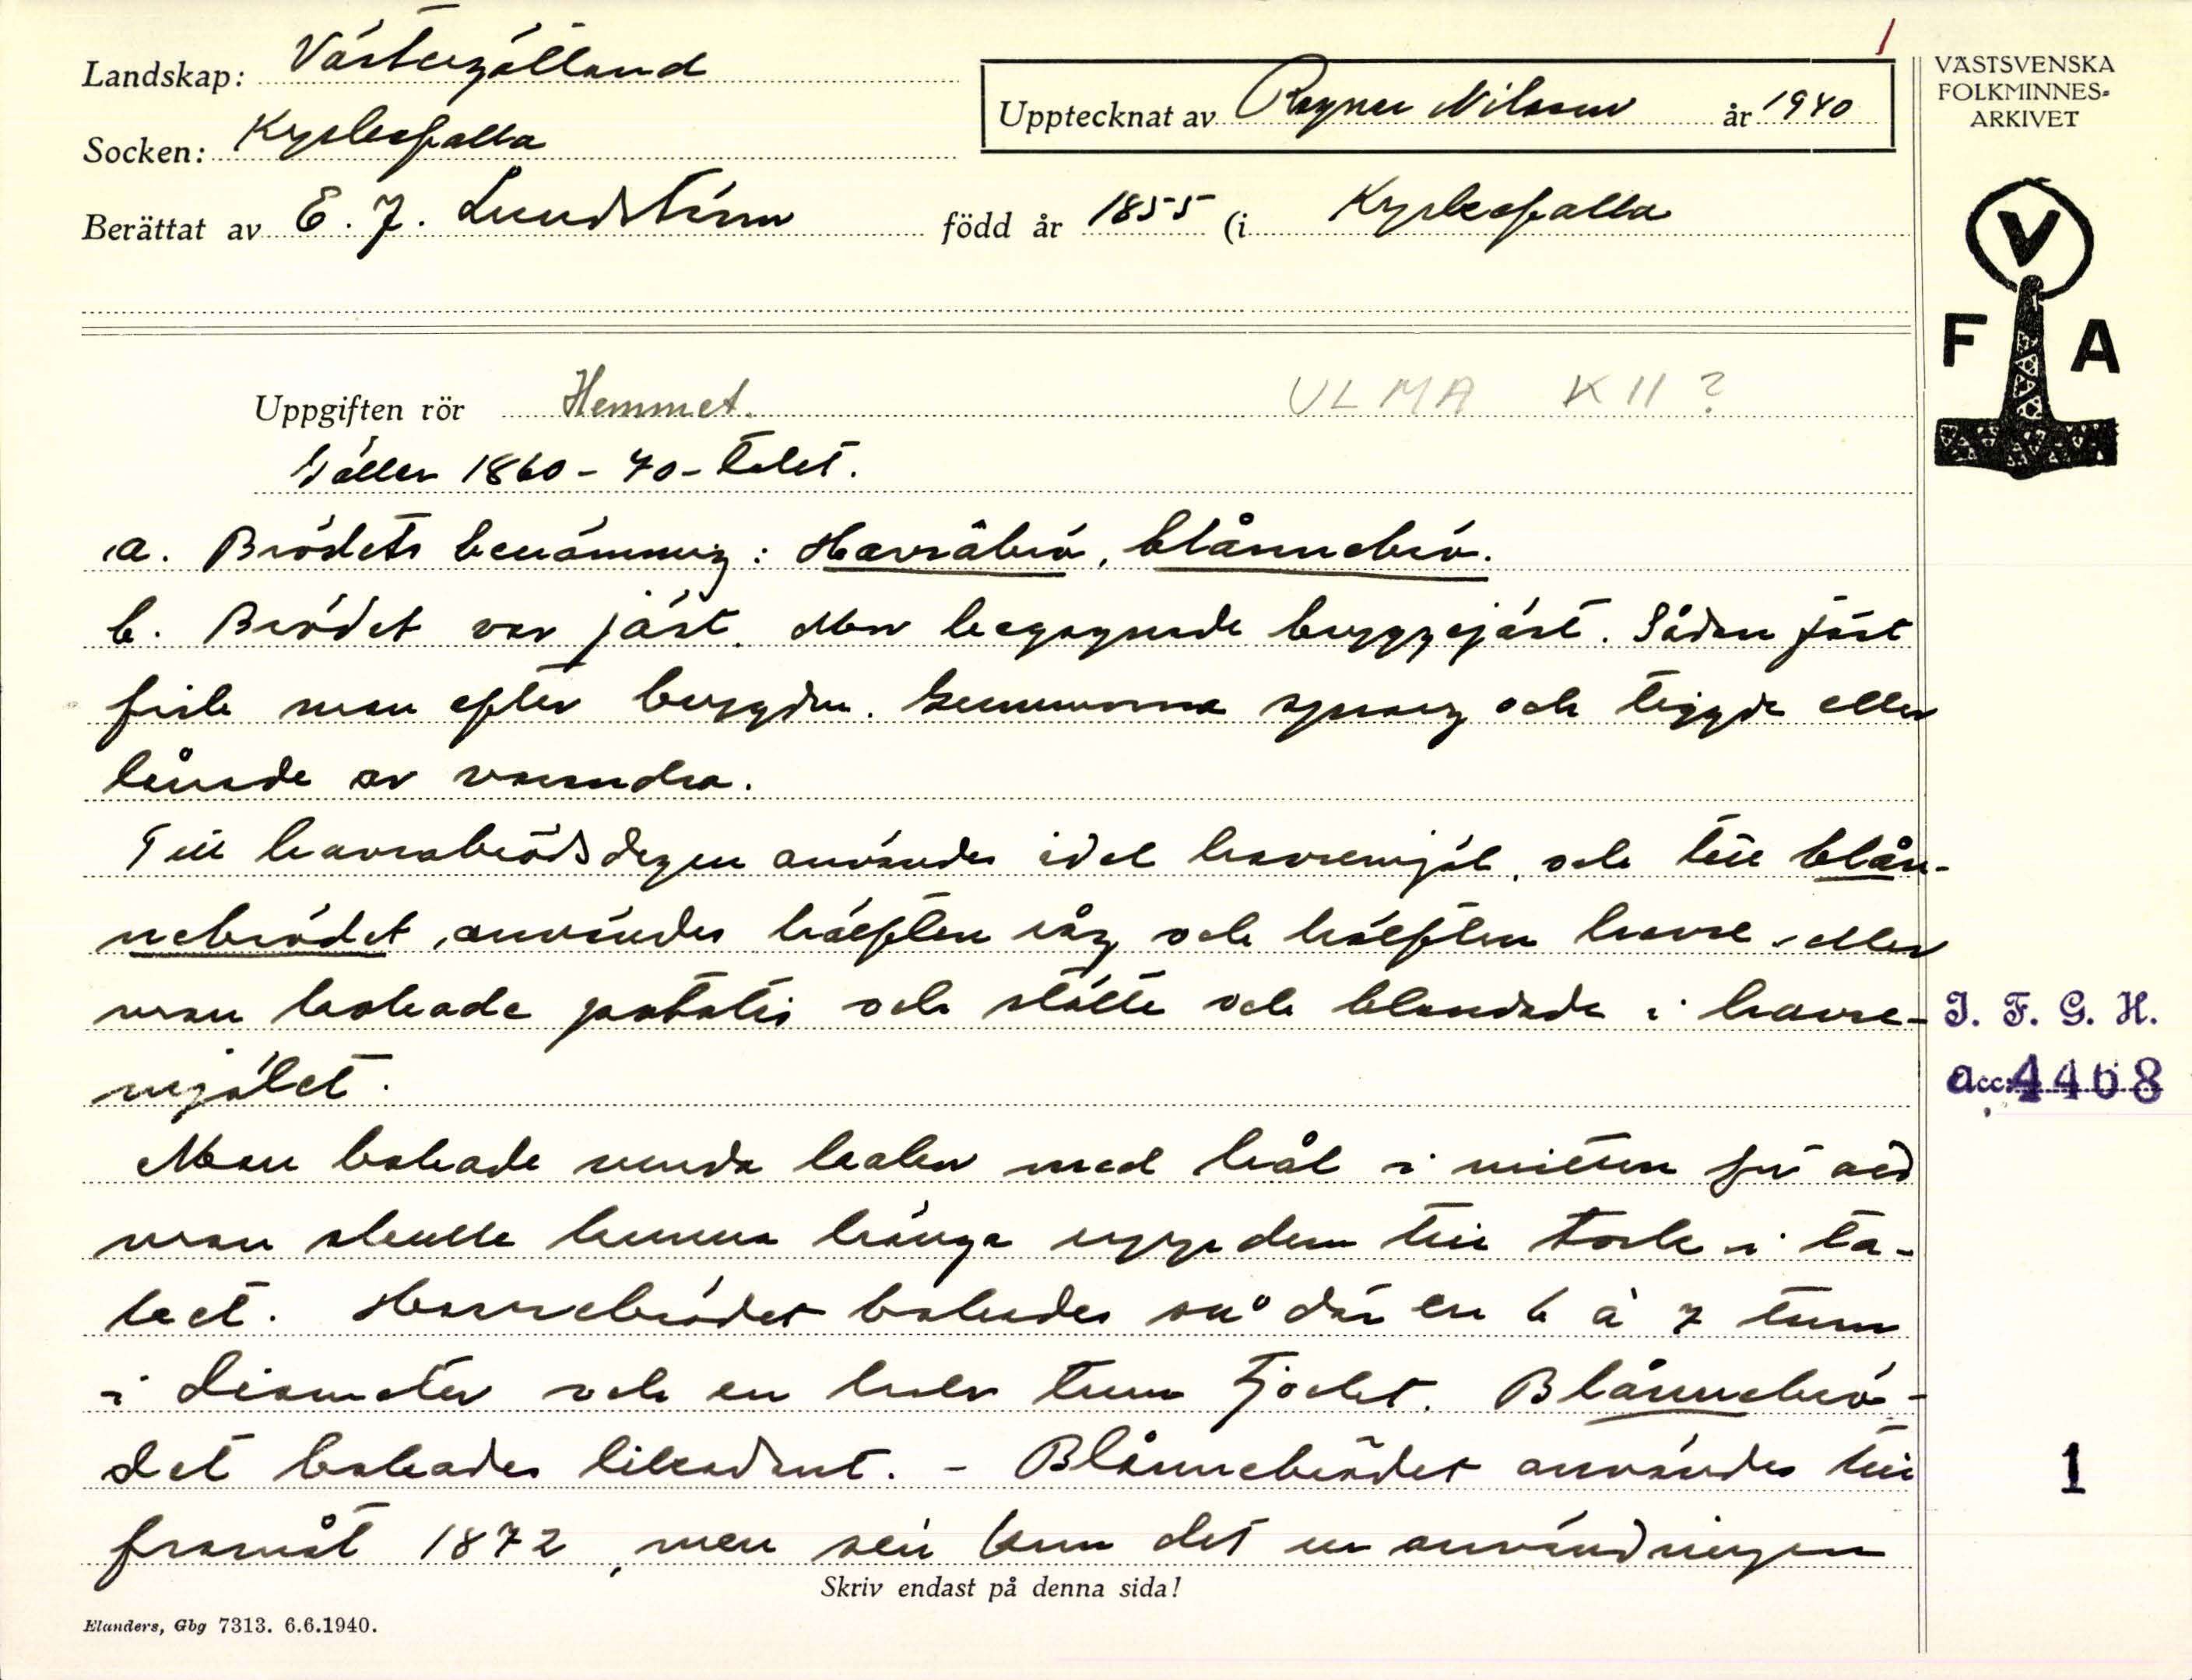 1
Landskap: Västergötland
Socken: Kyrkefalla
Upptecknat av Ragnar Nilsson år 1940
Berättat av E. J. Lundström född år 1855 (i Kyrkefalla
VÄSTSVENSKA
FOLKMINNES-
ARKIVET
V
F A
Uppgiften rör Hemmet. ULMA K 11 ?
Gäller 1860-70-talet.
a. Brödets benämning: Havrabrö, blånnebrö.
b. Brödet var jäst. Man begagnade bryggejäst. Sådan jäst
fick man efter brygden. Gummorna sprang och tiggde eller
lånade av varandra.
Till havrabrödsdegen användes idel havremjöl, och till blån-
nebrödet, användes hälften råg och hälften havre, eller
man kokade potatis och stötte och blandade i havre-
mjölet.
Man bakade runda kakor med hål i mitten för att
man skulle kunna hänga upp dem till tork i ta-
ket. Havrebrödet bakades så där en 6 à 7 tum
i diameter och en halv tum tjockt. Blånnebrö-
det bakades likadant. - Blånnebrödet användes till
framåt 1872, men sen kom det ur användningen
I. F. G. H.
acc: 4468
1
Skriv endast på denna sida!
Elanders, Gbg 7313. 6.6.1940.